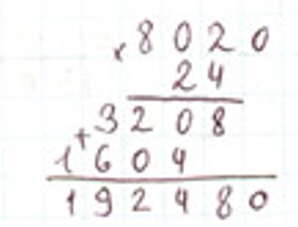 × 8020
24
3208
+
1604
192480